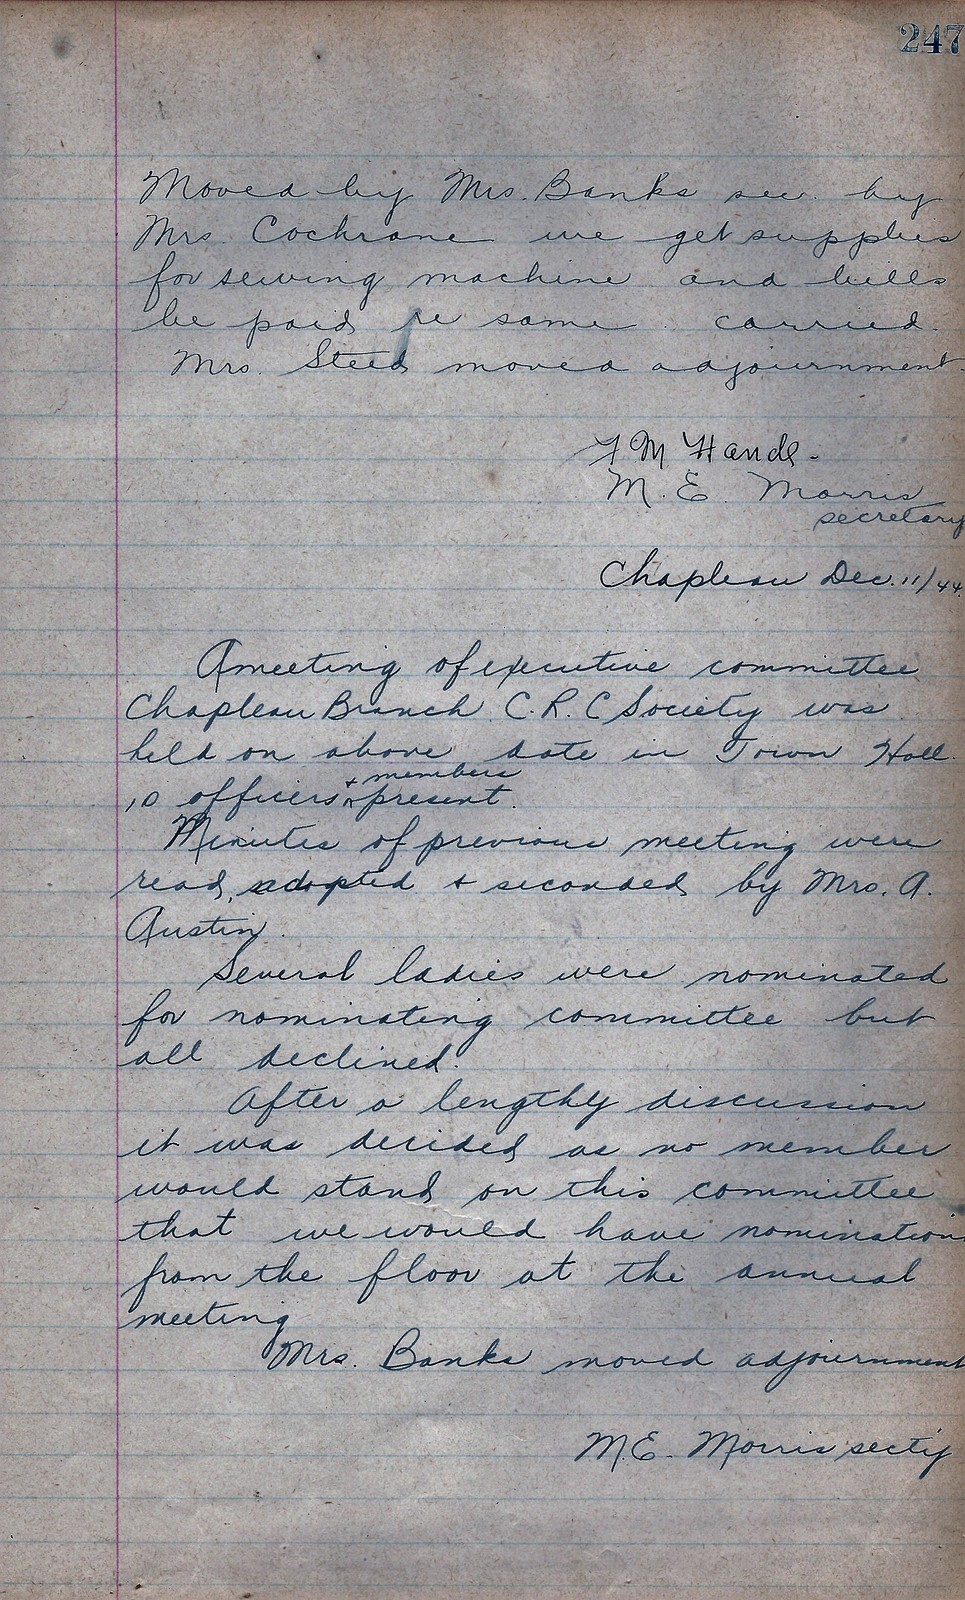 247
Moved by Mrs. Banks sec. by
Mrs. Cochrane we get supplies
for sewing machine and bills
be paid re same. carried.
Mrs. Steed moved adjournment.
F M Hands.
M. E. Morris
secretary
Chapleau Dec. 11/44.
A meeting of executive committee
Chapleau Branch C.R.C Society was
held on above date in Town Hall.
10 officers + members present.
Minutes of previous meeting were
read, adopted + seconded by Mrs. A.
Austin.
Several ladies were nominated
for nominating committee but
all declined.
After a lengthy discussion
it was decided as no member
would stand on this committee
that we would have nominations
from the floor at the annual
meeting
Mrs. Banks moved adjournment
M.E. Morris secty